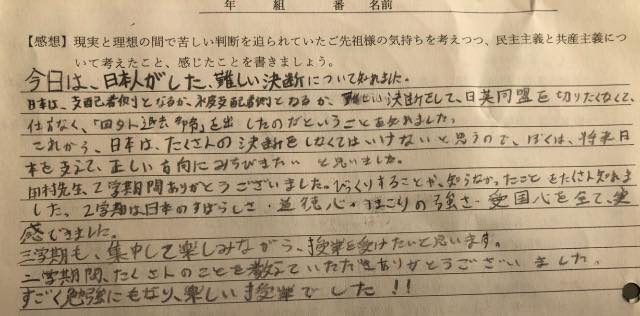 年 組 番 名前
【感想】現実と理想の間で苦しい判断を迫られていたご先祖様の気持ちを考えつつ、民主主義と共産主義につ
いて考えたこと、感じたことを書きましょう。
今日は、日本人がした、難しい決断について知れました。
日本は、支配者側となるか、被支配者側となるか、難しい決断をして、日英同盟を切りたくなくて、
仕方なく、「四か入退去命令」を出したのだということを知れました。
これから、日本は、たくさんの決断をしなくてはいけないと思うので、ぼくは、将来日
本を支えて、正しい方向にみちびきたいと思いました。
田村先生、2学期間ありがとうございました。びっくりすることや、知らなかったことをたくさん知れま
した。2学期は日本のすばらしさ・道徳心・ほこりの強さ・愛国心を全て、実
感できました。
三学期も、集中して楽しみながら、授業を受けたいと思います。
二学期間、たくさんのことを教えていただきありがとうございました。
すごく勉強にもなり、楽しい授業でした!!